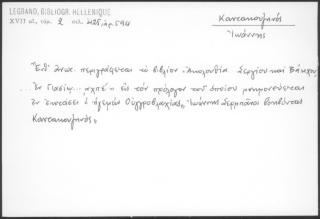 LEGRAND, BIBLIOGR. HELLENIQUE
XVII αἰ. τόμ. 2 σελ. 425, ἀρ. 594
Καντακουζηνός
Ἰωάννης
Ἐνθ' ἄνωτ. περιγράφεται τὸ βιβλίον "Ἀκολουθία Σεργίου καὶ Βάκχου
... ἐν Γιασίῳ... ͵αχπε΄" εἰς τὸν πρόλογον τοῦ ὁποίου μνημονεύεται
ἐν ἐκτάσει ὁ ἡγεμὼν Οὐγγροβλαχίας, "Ἰωάννης Σερμπάνος βοηβόντας
Καντακουζηνός"